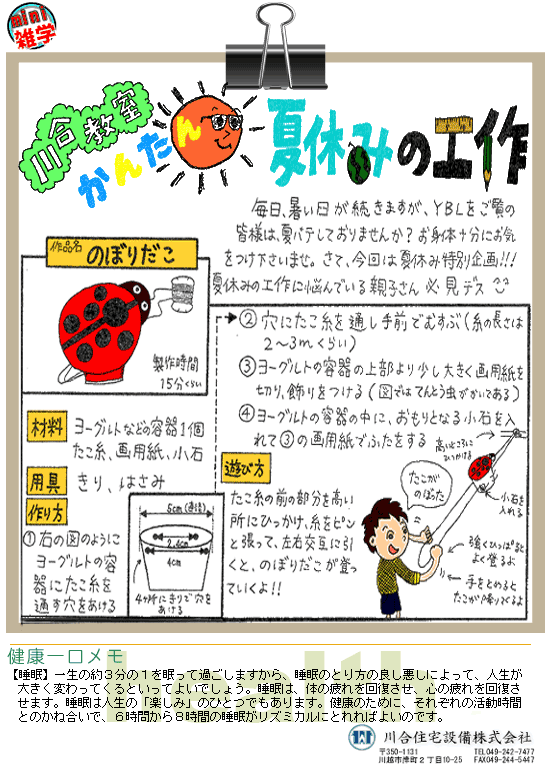 mini
雑学
川合教室
かんたん
夏休みの工作
毎日、暑い日が続きますが、YBLをご覧の
皆様は、夏バテしておりませんか？お身体十分にお気
をつけ下さいませ。さて、今回は夏休み特別企画!!!
夏休みの工作に悩んでいる親子さん必見デス
作品名 のぼりだこ
製作時間
15分くらい
材料 ヨーグルトなどの容器1個
たこ糸、画用紙、小石
用具 きり、はさみ
作り方
①右の図のように
ヨーグルトの容
器にたこ糸を
通す穴をあける
5cm(直径)
2.6cm
4cm
4ヶ所にきりで穴を
あける
②穴にたこ糸を通し手前でむすぶ(糸の長さは
2～3mくらい)
③ヨーグルトの容器の上部より少し大きく画用紙を
切り、飾りをつける(図ではてんとう虫がかいてある)
④ヨーグルトの容器の中に、おもりとなる小石を入
れて③の画用紙でふたをする
遊び方
たこ糸の前の部分を高い
所にひっかけ、糸をピン
と張って、左右交互に引
くと、のぼりだこが登っ
ていくよ!!
たこが
のぼった
高いところに
ひっかける
小石を
入れる
強くひっぱると
よく登るよ
手をとめると
たこが降りてくるよ
健康一口メモ
【睡眠】一生の約３分の１を眠って過ごしますから、睡眠のとり方の良し悪しによって、人生が
大きく変わってくるといってよいでしょう。睡眠は、体の疲れを回復させ、心の疲れを回復さ
せます。睡眠は人生の「楽しみ」のひとつでもあります。健康のために、それぞれの活動時間
とのかね合いで、６時間から８時間の睡眠がリズミカルにとれればよいのです。
川合住宅設備株式会社
〒350-1131 TEL049-242-7477
川越市岸町２丁目10-25 FAX049-244-5447